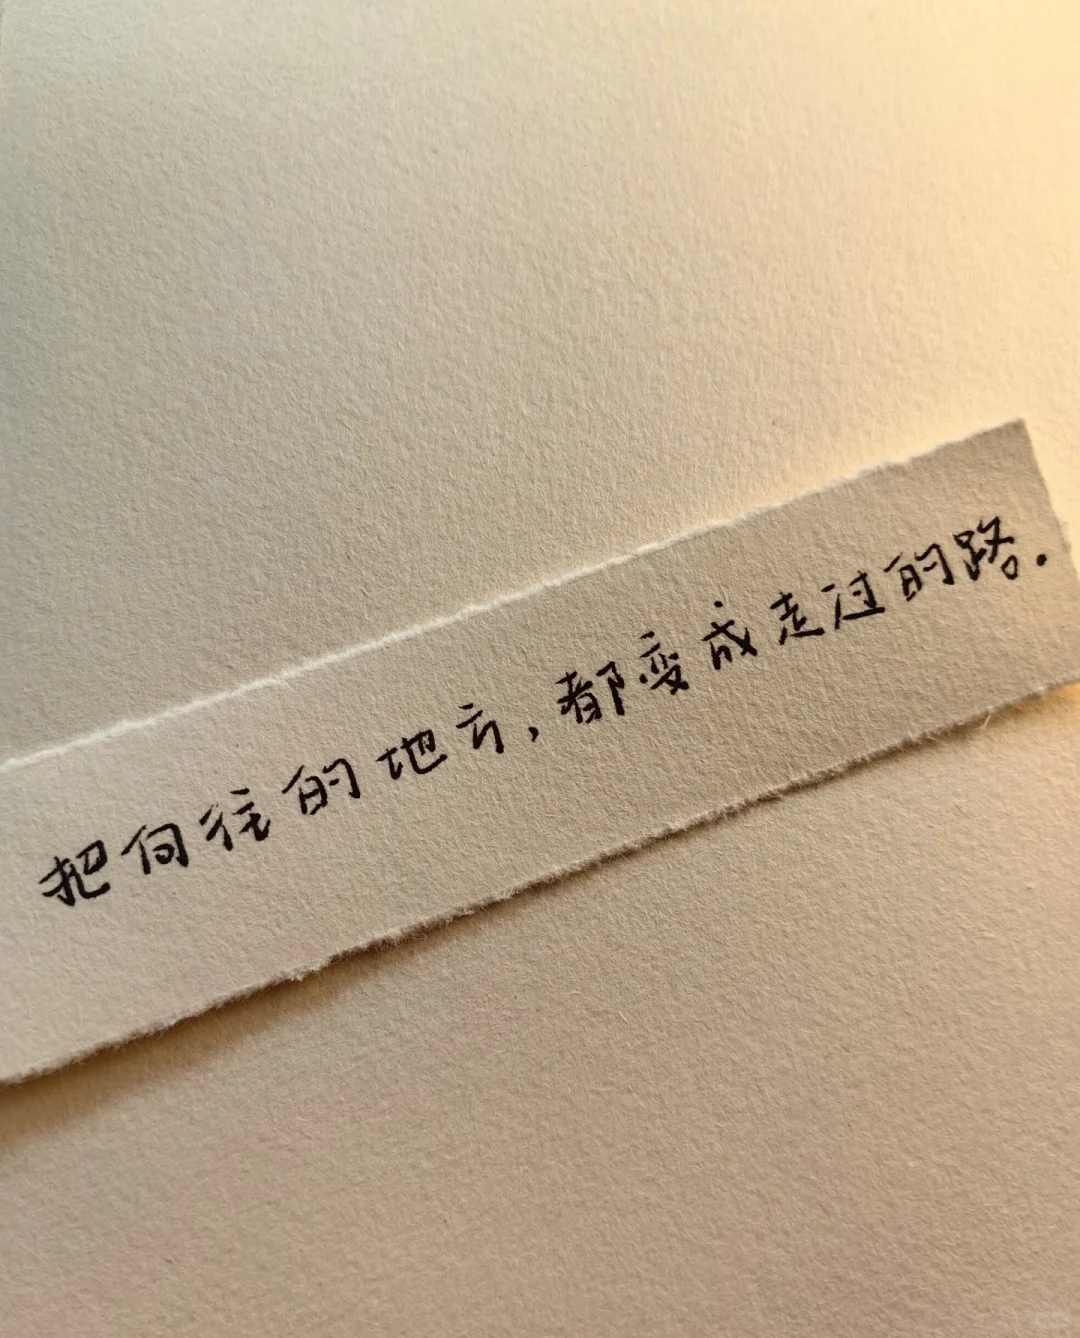 把向往的地方,都变成走过的路.